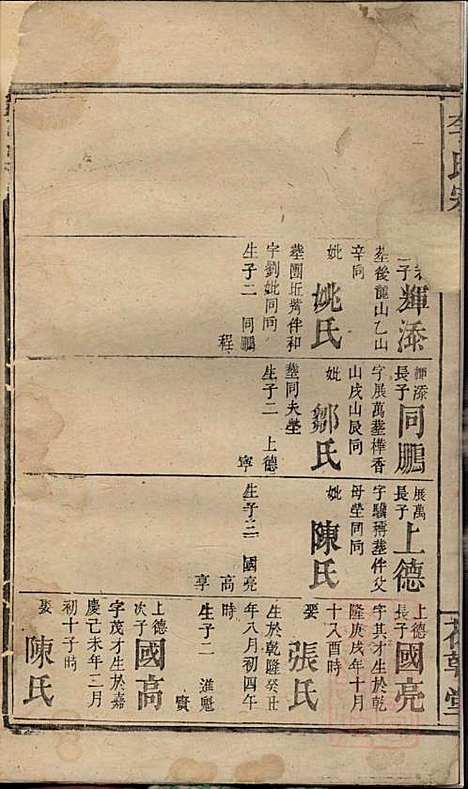 李氏宗
輝添
塟後龍山乙山
辛同
妣
姚氏
塟團坵嘴伴和
字劉妣同同
生子二 同鵬
程
輝添
長子
同鵬
字展萬塟樺香
山戌山艮同
妣
鄒氏
塟同夫塋
生子二 上德
寧
展萬
長子
上德
字驥稱塟伴父
母塋同同
妣
陳氏
生子三 國亮
高
享
上德
長子
國亮
字其才生於乾
隆庚戌年十月
十八酉時
娶
張氏
生於乾隆癸丑
年八月初四午
時
生子二 進魁
賢
上德
次子
國高
字茂才生於嘉
慶己未年二月
初十子時
娶
陳氏